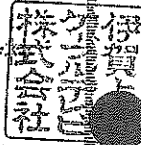 伊賀上
ケーブルテレビ
株式会社